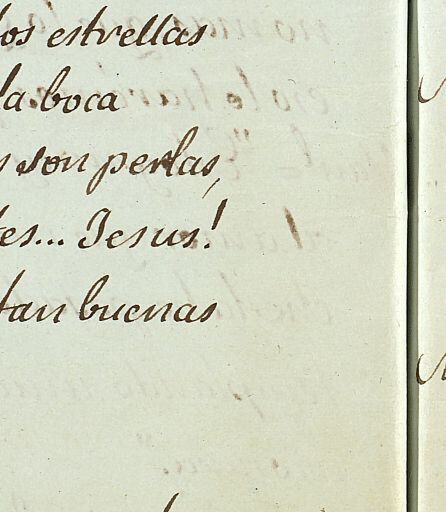 los estrellas
la boca
son perlas,
tes... Jesus!
tan buenas